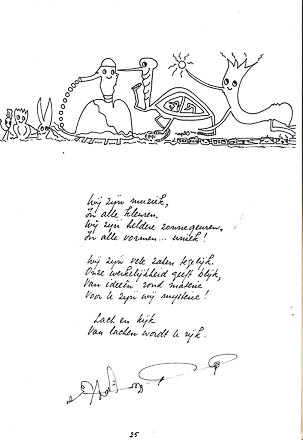 Wij zijn muziek,
In alle kleuren.
Wij zijn heldere zonnegeuren,
In alle vormen... uniek!
Wij zijn vele zalen tegelijk.
Onze werkelijkheid geeft blijk,
Van ideeën rond materie
Voor U zijn wij mysterie!
Lach en kijk
Van lachen wordt U rijk.
25